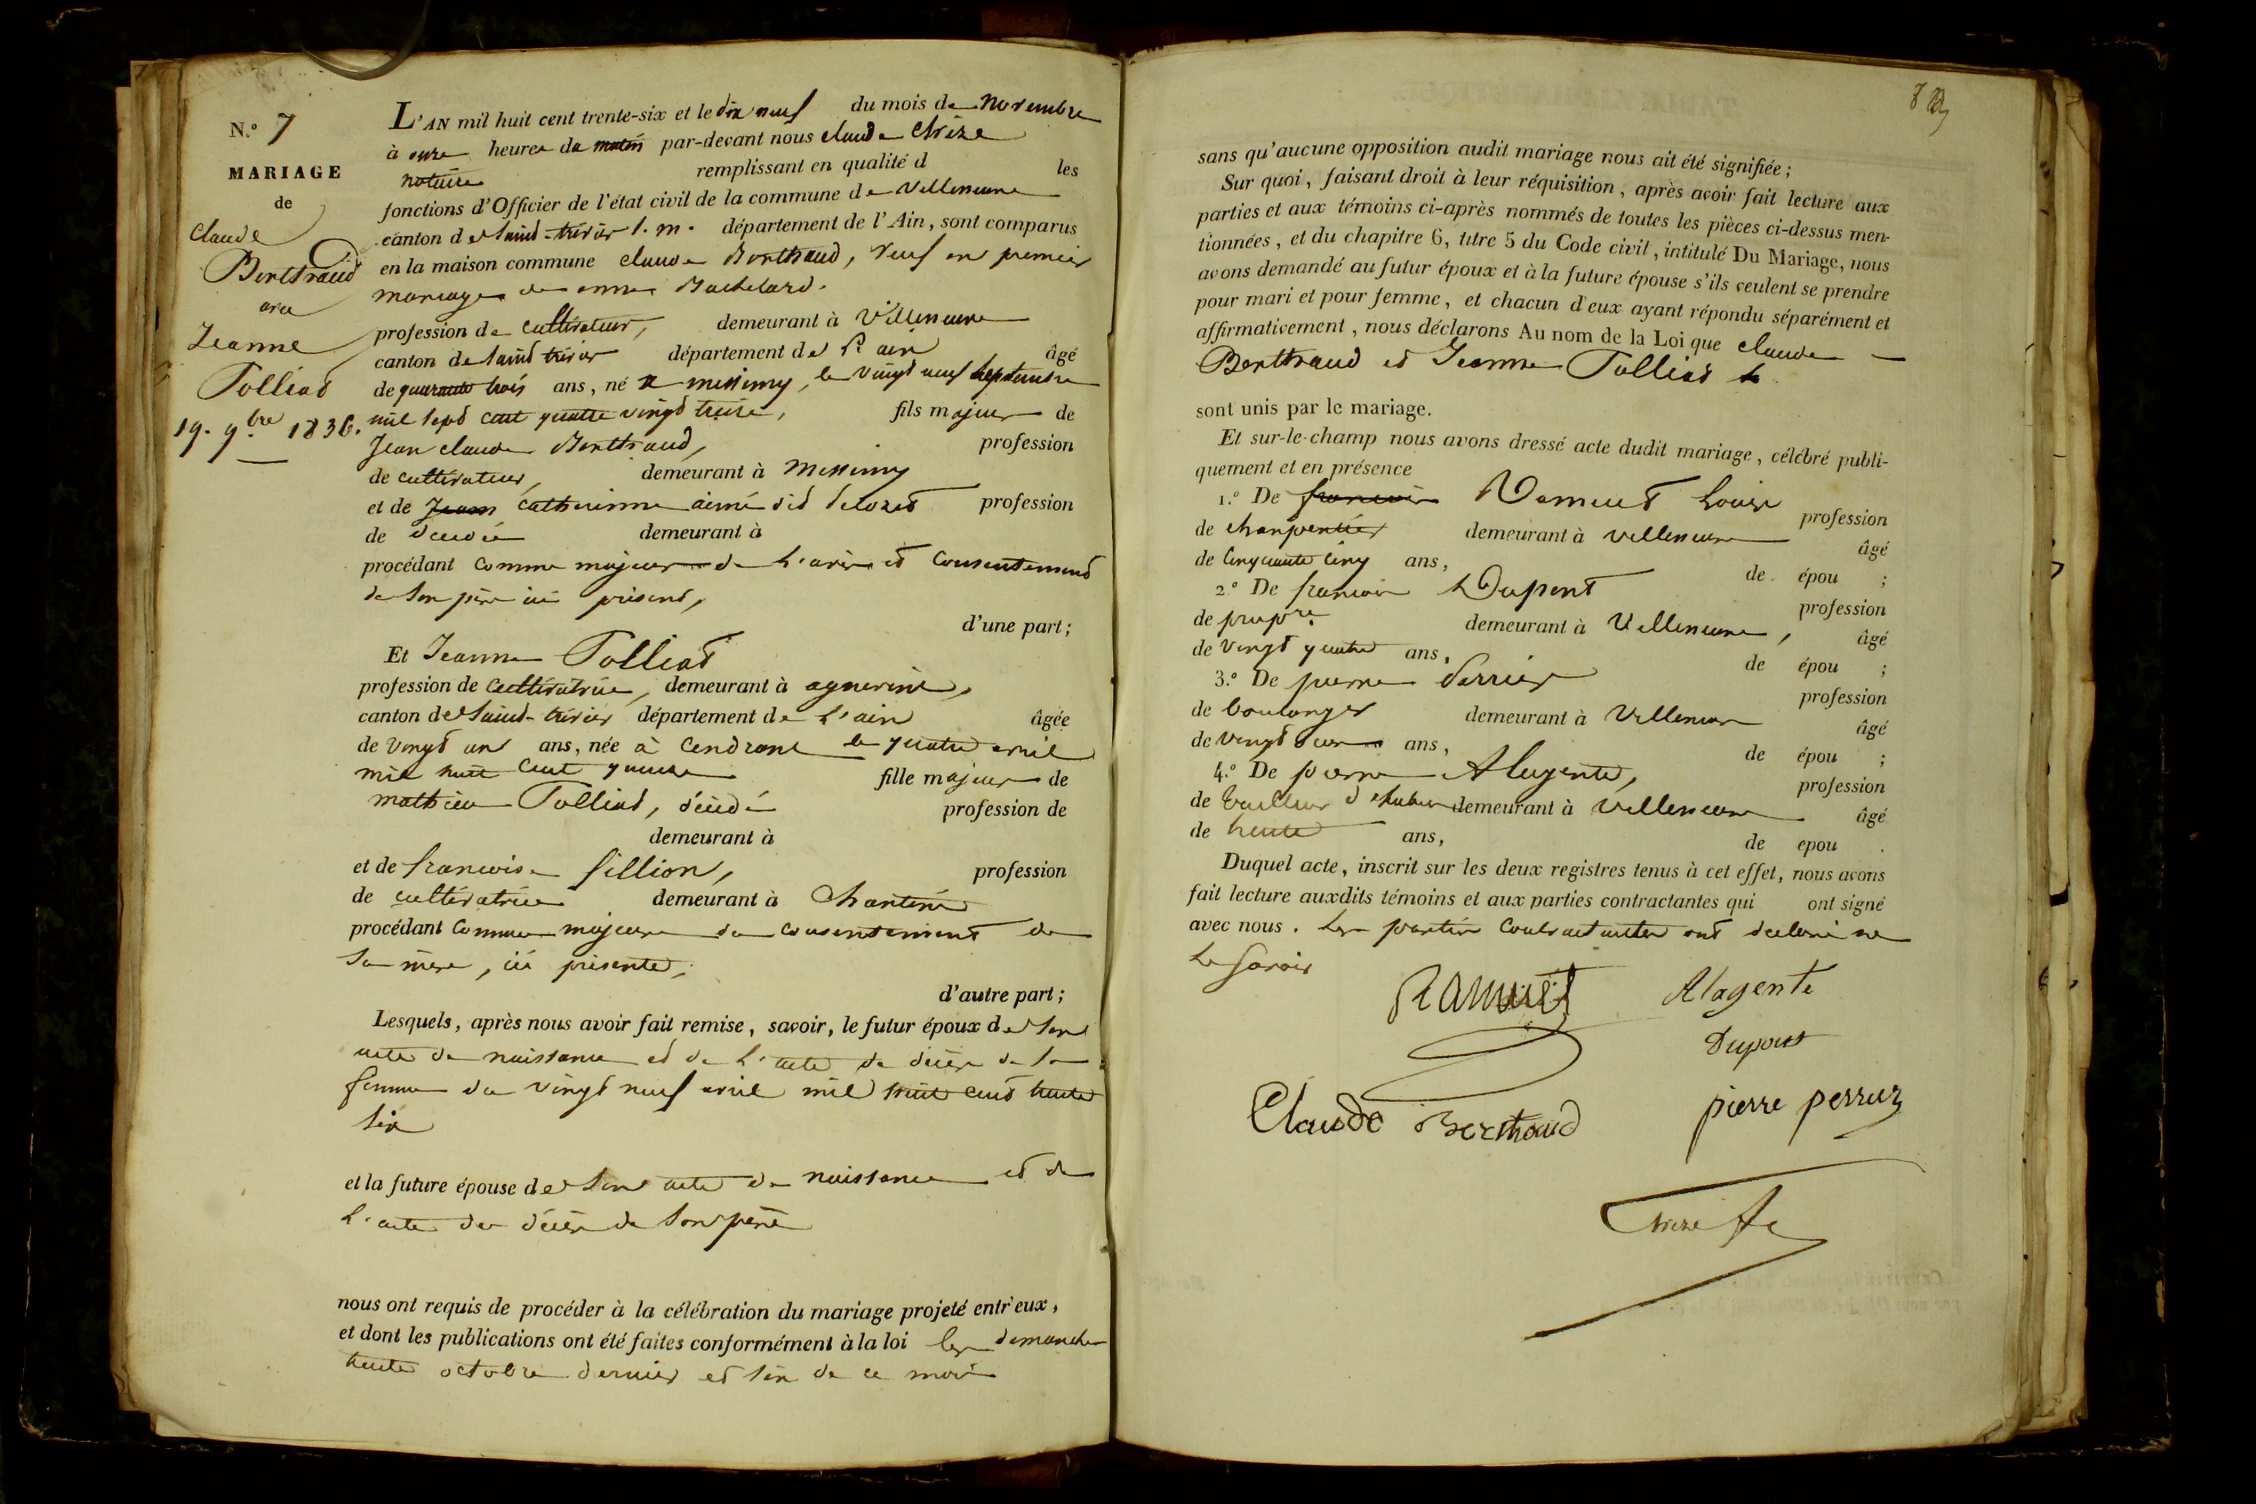 N.º 7
MARIAGE
de
Claude
Berthaud
avec
Jeanne
Tolliat
19. 9.bre 1836.
L'AN mil huit cent trente-six et le dix neuf du mois de novembre
à onze heures du matin par-devant nous claude
notaire remplissant en qualité d les
fonctions d'Officier de l'état civil de la commune de Villeneuve
canton de Saint-trivier S. m. département de l'Ain, sont comparus
en la maison commune claude Berthaud, veuf en premier
mariage de anne Bachelard.
profession de cultivateur, demeurant à Villeneuve
canton de Saint trivier département de l'ain âgé
de quarante trois ans, né à messimy, le vingt neuf septembre
mil sept cent quatre vingt treize, fils majeur de
Jean claude Berthaud, profession
de cultivateur, demeurant à Messimy
et de Jean catherine aimé dit profession
de décédée demeurant à
procédant comme majeur de l'avis et consentement
de son père ici présent,
d'une part;
Et Jeanne Tolliat
profession de cultivatrice, demeurant à agnereins,
canton de Saint-trivier département de l'ain âgée
de vingt un ans, née à Cendrans le quatre avril
mil huit cent quinze fille majeure de
mathieu Tolliat, décédé profession de
demeurant à
et de francoise fillion, profession
de cultivatrice demeurant à Chanteins
procédant comme majeure du consentement de
sa mère, ici présente,
d'autre part;
Lesquels, après nous avoir fait remise, savoir, le futur époux de son
acte de naissance et de l'acte de décès de sa
femme du vingt neuf avril mil huit cent trente
six
et la future épouse de son acte de naissance et de
l'acte de décès de son père
nous ont requis de procéder à la célébration du mariage projeté entr'eux,
et dont les publications ont été faites conformément à la loi les dimanches
trente octobre dernier et six de ce mois
sans qu'aucune opposition audit mariage nous ait été signifiée;
Sur quoi, faisant droit à leur réquisition, après avoir fait lecture aux
parties et aux témoins ci-après nommés de toutes les pièces ci-dessus men-
tionnées, et du chapitre 6, titre 5 du Code civil, intitulé Du Mariage, nous
avons demandé au futur époux et à la future épouse s'ils veulent se prendre
pour mari et pour femme, et chacun d'eux ayant répondu séparément et
affirmativement, nous déclarons Au nom de la Loi que claude
Berthaud et Jeanne Tolliat
sont unis par le mariage.
Et sur-le-champ nous avons dressé acte dudit mariage, célébré publi-
quement et en présence
1.º De francois Ramuet Louis profession
de charpentier demeurant à villeneuve âgé
de cinquante cinq ans, de épou ;
2.º De francois Dupont profession
de propre demeurant à Villeneuve, âgé
de vingt quatre ans, de épou ;
3.º De pierre perrier profession
de boulanger demeurant à Villeneuve âgé
de vingt deux ans, de épou ;
4.º De pierre Alagente, profession
de tailleur d'habits demeurant à villeneuve âgé
de trente ans, de epou .
Duquel acte, inscrit sur les deux registres tenus à cet effet, nous avons
fait lecture auxdits témoins et aux parties contractantes qui ont signé
avec nous. les parties contractantes ont déclaré ne
le savoir
Ramuet Alagente
Dupont
Claude Berthaud pierre perrier